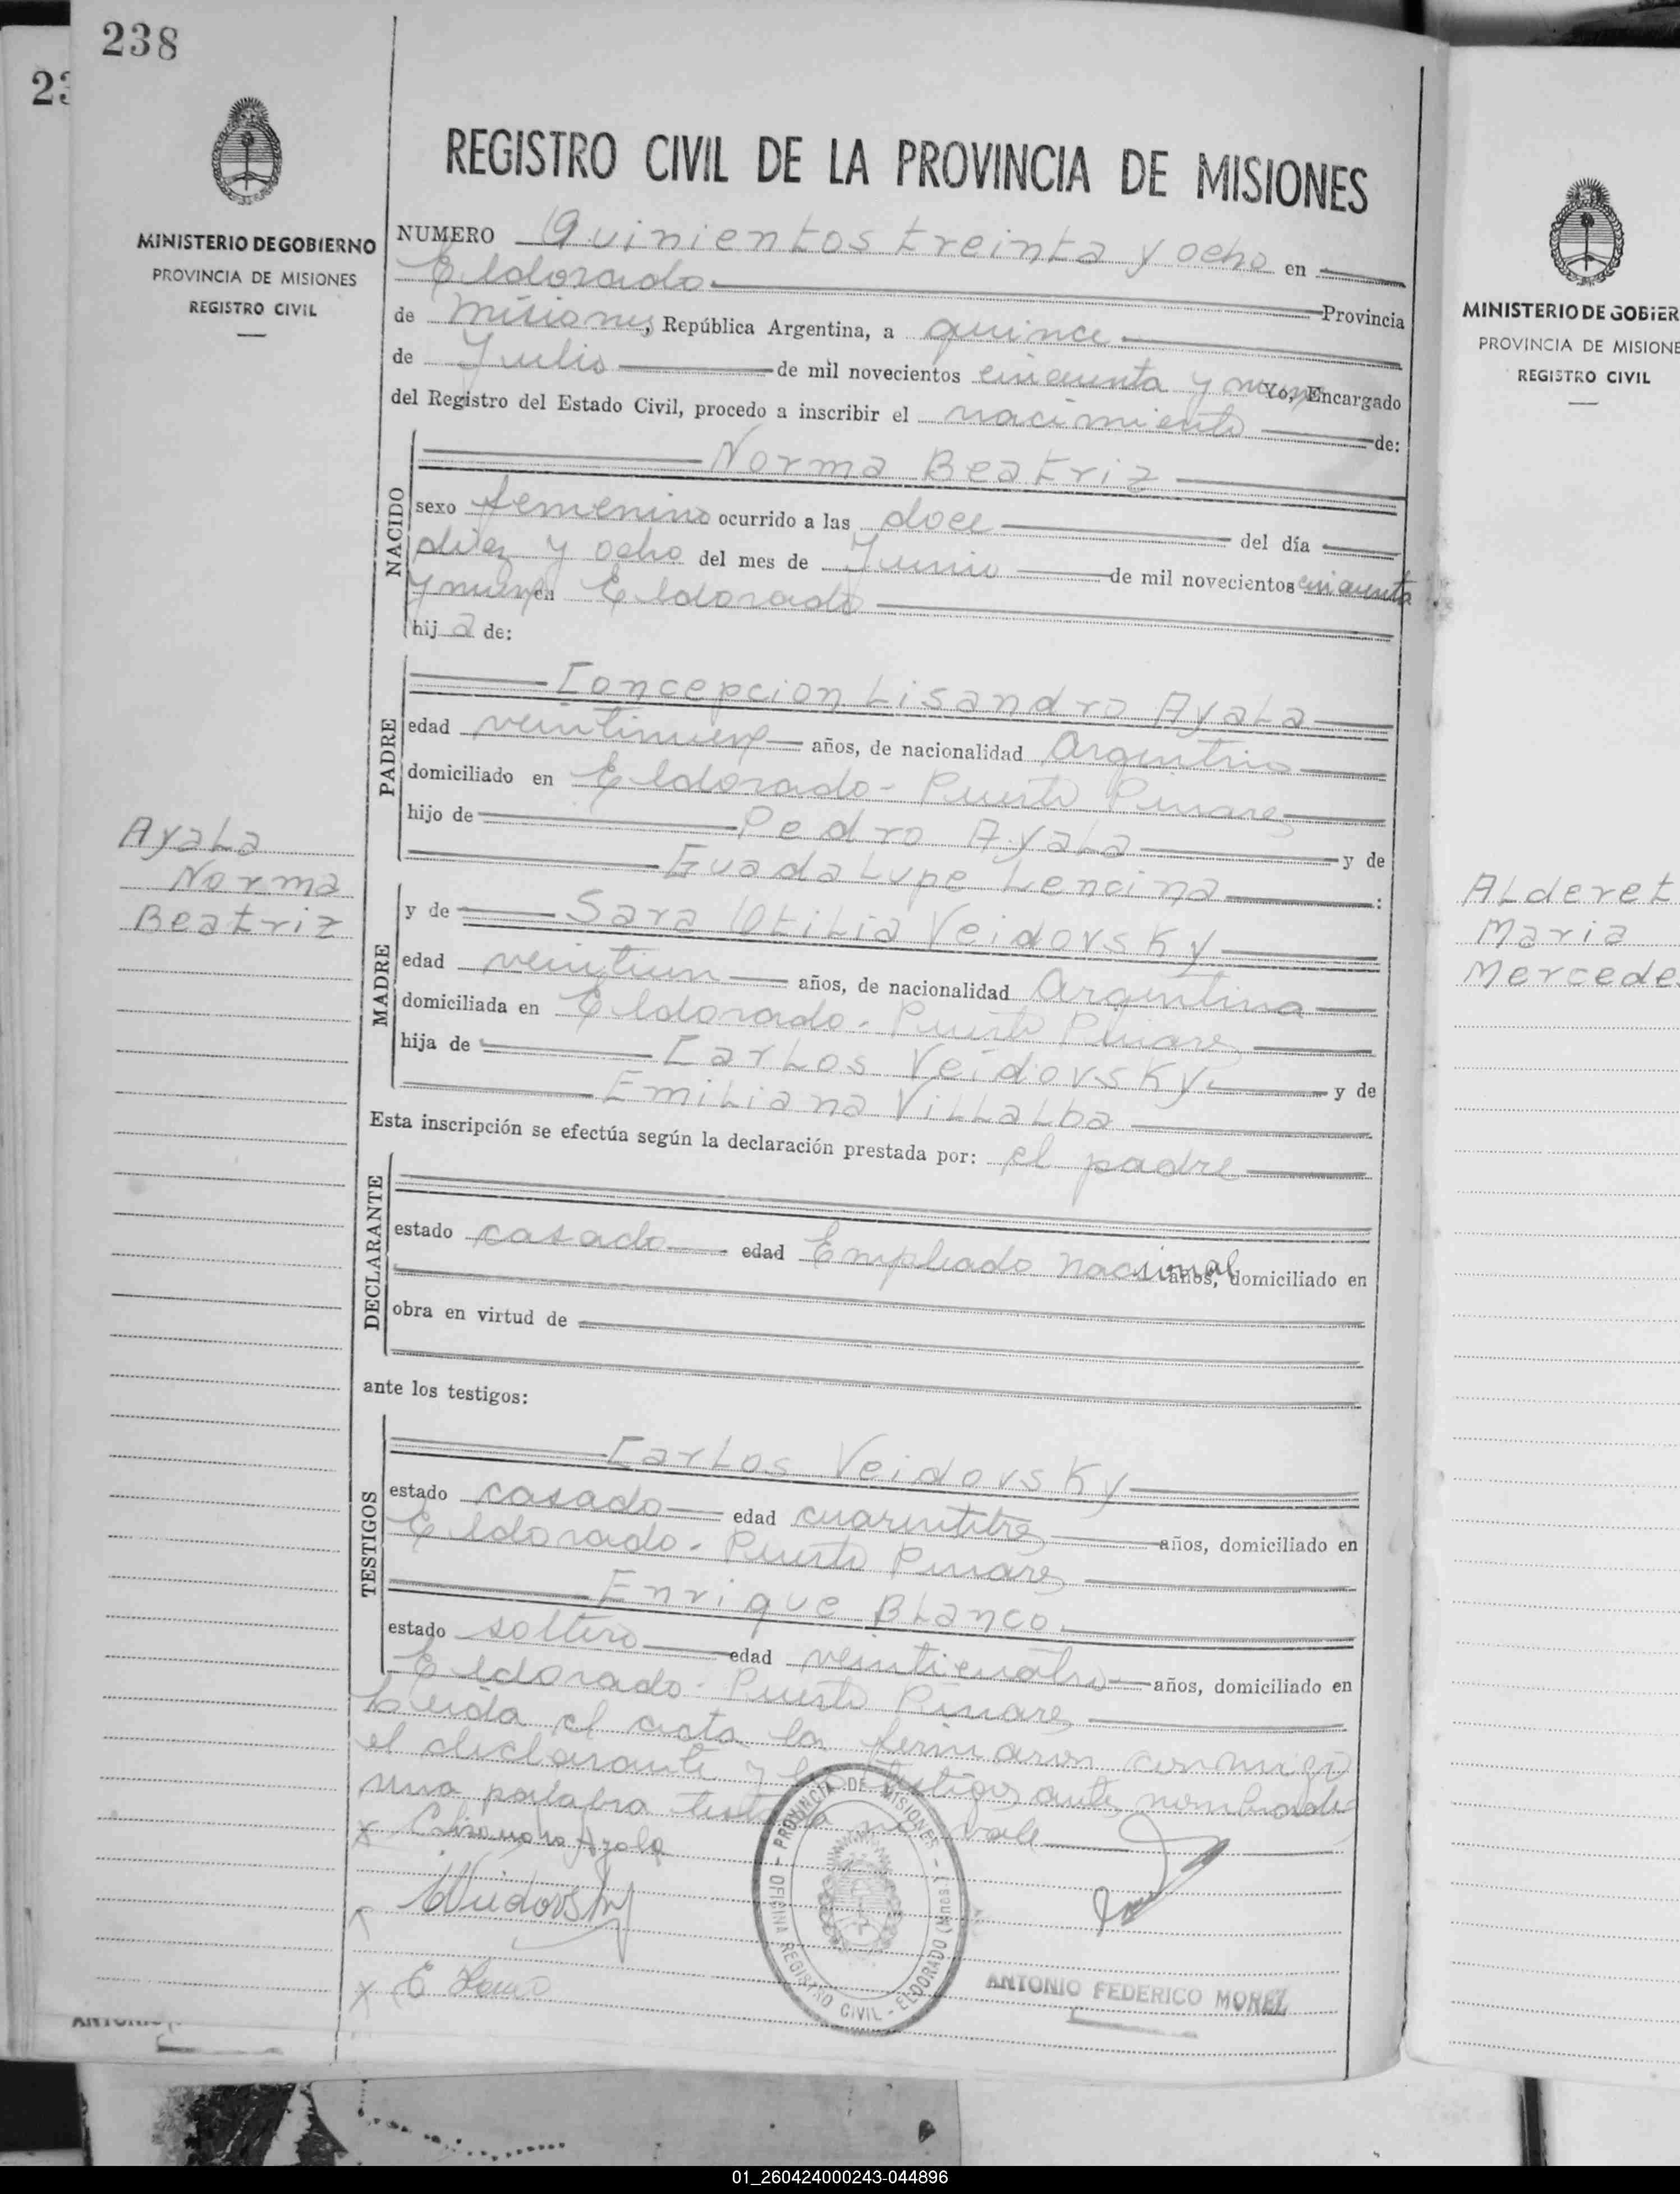 238
23
MINISTERIO DE GOBIERNO
PROVINCIA DE MISIONES
REGISTRO CIVIL
REGISTRO CIVIL DE LA PROVINCIA DE MISIONES
NUMERO Quinientos treinta y ocho en
Eldorado Provincia
de Misiones, República Argentina, a quince
de Julio de mil novecientos cincuenta y nueve Yo, Encargado
del Registro del Estado Civil, procedo a inscribir el nacimiento de:
NACIDO
Norma Beatriz
sexo femenino ocurrido a las doce del día
diez y ocho del mes de Junio de mil novecientos cincuenta
y nueve en Eldorado
hij a de:
PADRE
Concepcion Lisandro Ayala
edad veintinueve años, de nacionalidad Argentino
domiciliado en Eldorado - Puerto Pinares
hijo de Pedro Ayala y de
Guadalupe Lencina :
MADRE
y de Sara Otilia Veidovsky
edad veintiun años, de nacionalidad Argentina
domiciliada en Eldorado - Puerto Pinares
hija de Carlos Veidovsky y de
Emiliana Villalba
Esta inscripción se efectúa según la declaración prestada por: el padre
DECLARANTE
estado casado edad Empleado nacional años, domiciliado en
obra en virtud de
ante los testigos:
TESTIGOS
Carlos Veidovsky
estado casado edad cuarentitres años, domiciliado en
Eldorado - Puerto Pinares
Enrique Blanco
estado soltero edad veinticuatro años, domiciliado en
Eldorado - Puerto Pinares
Leida el acta la firmaron conmigo
el declarante y los testigos antes nombrados
una palabra testada no vale
x Lisandro Ayala
Veidovsky
x E
PROVINCIA DE MISIONES - OFICINA REGISTRO CIVIL - ELDORADO (Mnes.)
ANTONIO FEDERICO MOREL
Ayala
Norma
Beatriz
MINISTERIO DE GOBIER
PROVINCIA DE MISIONE
REGISTRO CIVIL
Alderet
Maria
Mercedes
01_260424000243-044896